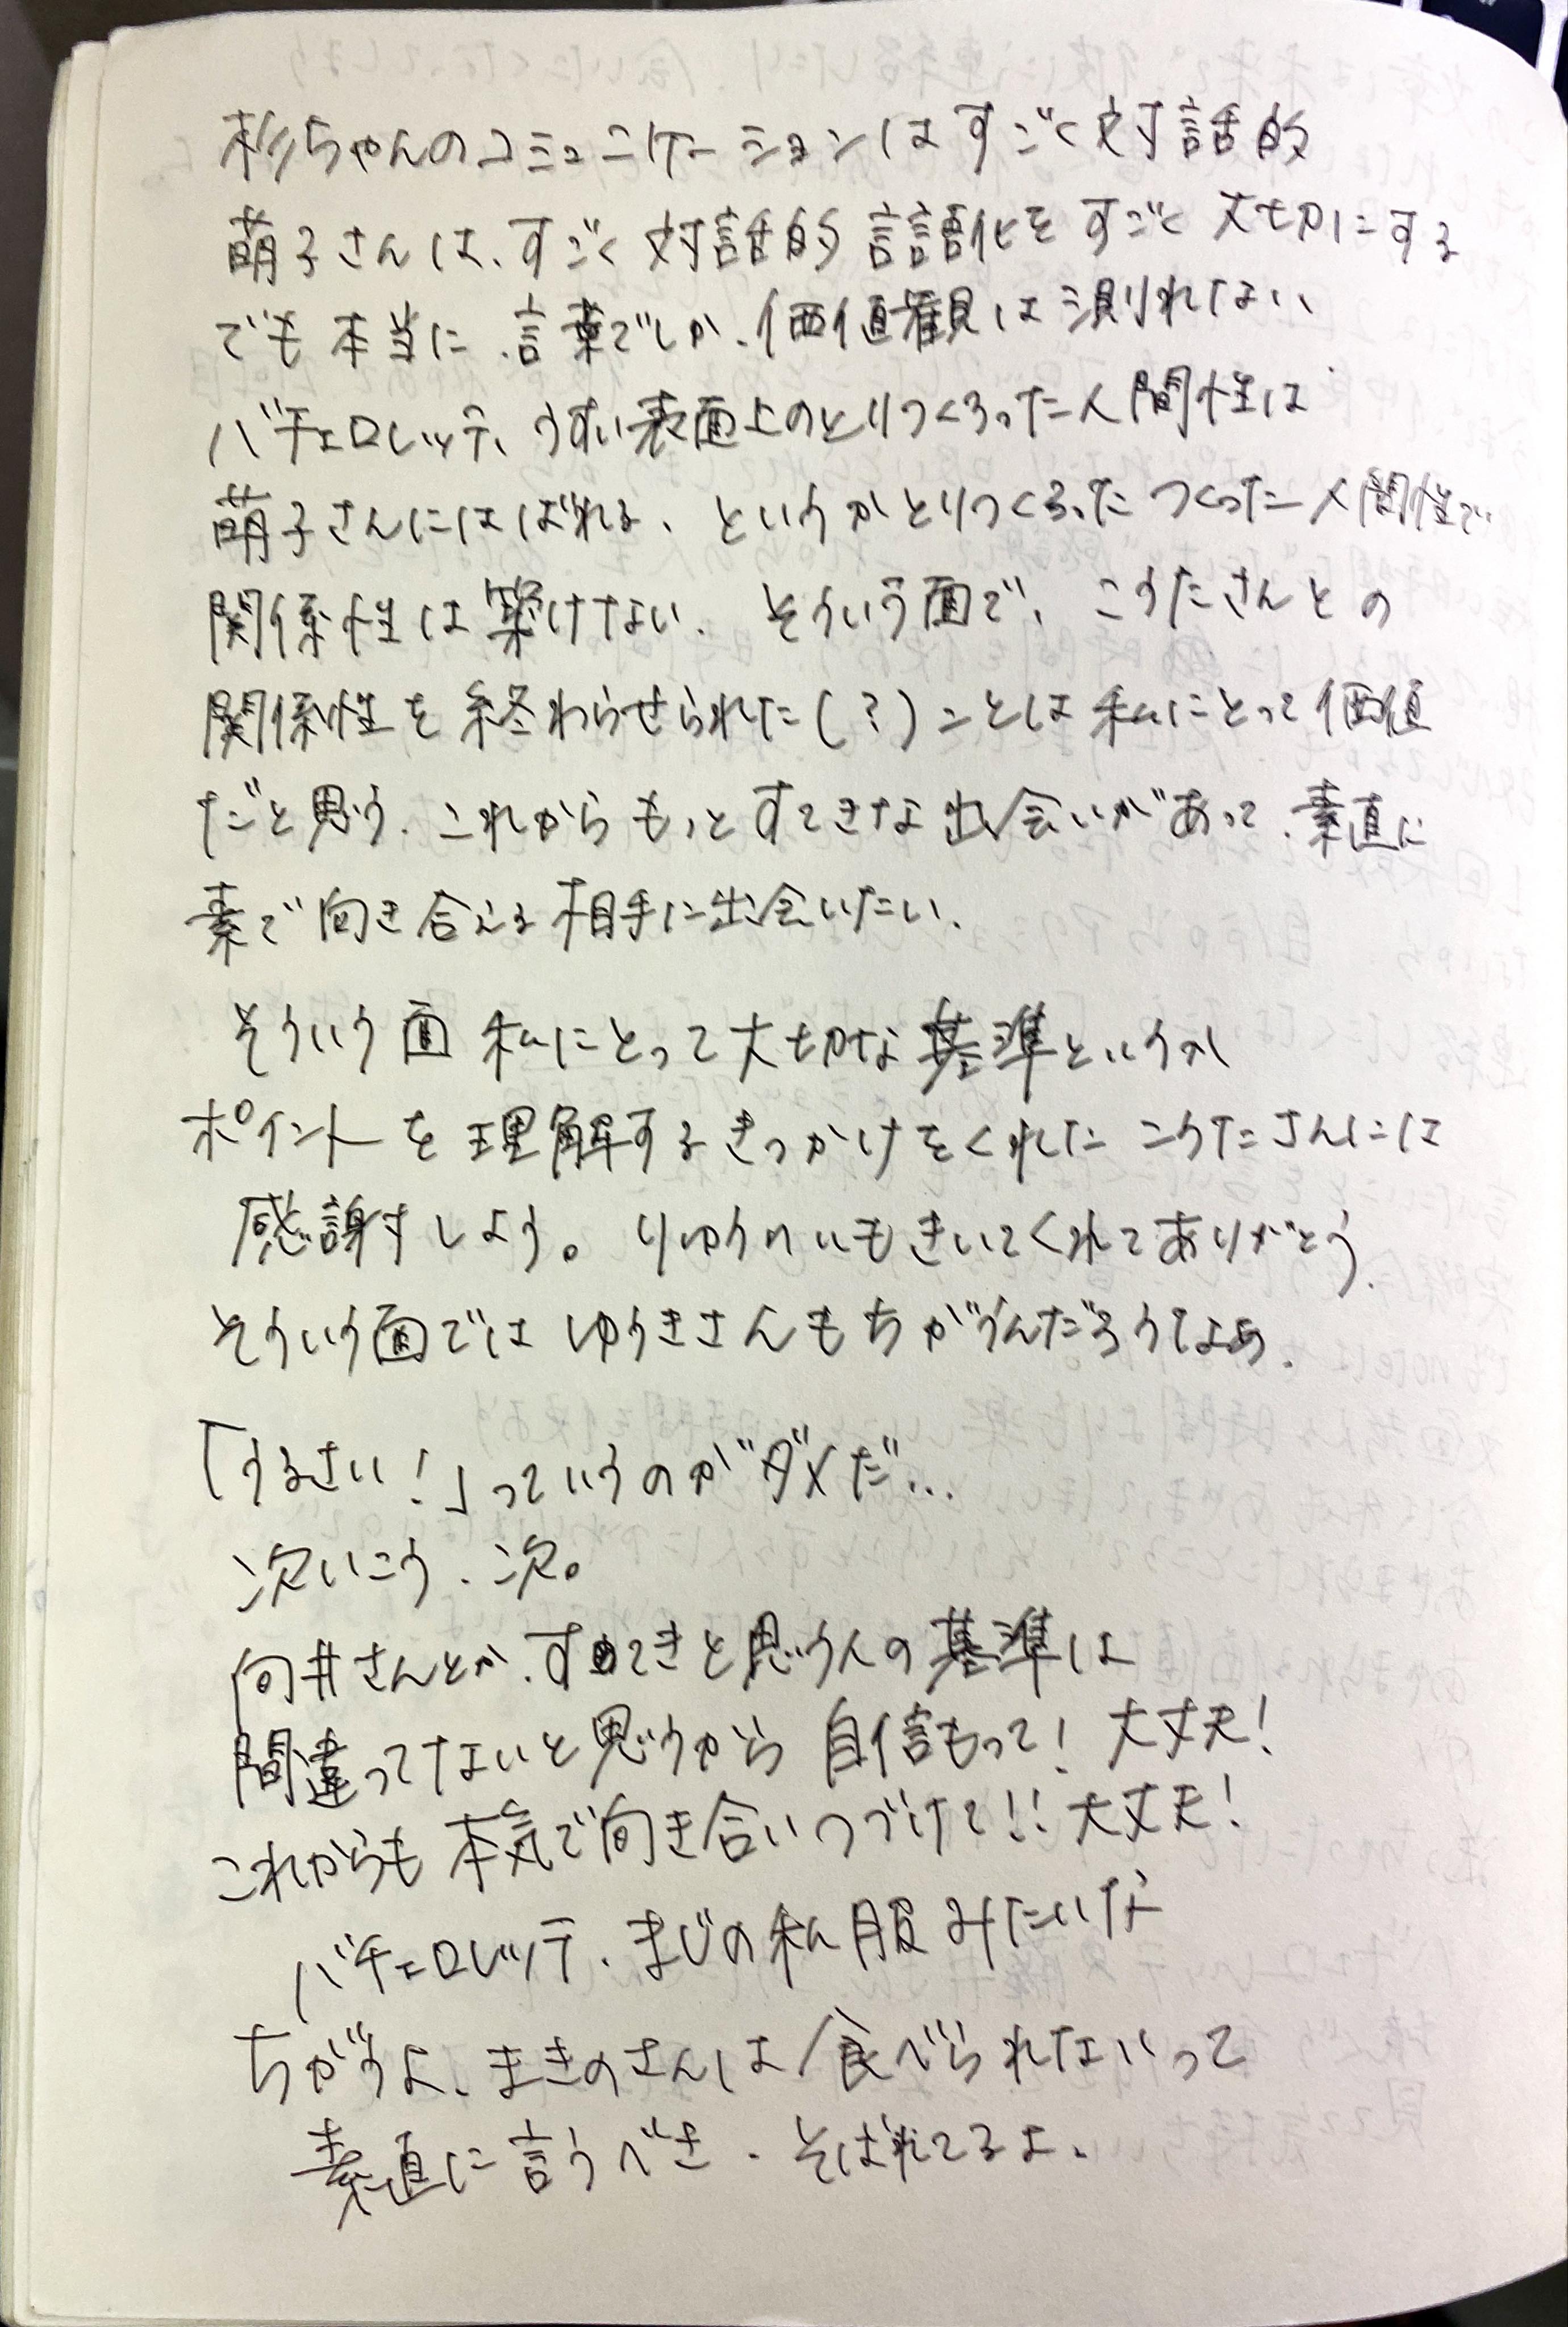 杉ちゃんのコミュニケーションはすごく対話的
萌子さんは、すごく対話的 言語化をすごく大切にする
でも本当に、言葉でしか、価値観は測れない
バチェロレッテ、うすい表面上のとりつくろった人間性は
萌子さんにはばれる、というかとりつくろった つくった人間性で
関係性は築けない、そういう面で、こうたさんとの
関係性を終わらせられた(?)ことは私にとって価値
だと思う、これからもっとすてきな出会いがあって、素直に
素で向き合える相手に出会いたい、
そういう面 私にとって大切な基準というか
ポイントを理解するきっかけをくれた こうたさんには
感謝すしよう。りゅうへいもきいてくれてありがとう、
そういう面では ゆうきさんもちがうんだろうなぁ、
「うるさい!」っていうのがダメだ…
次いこう、次。
向井さんとか、すてきと思う人の基準は
間違ってないと思うから 自信もって!大丈夫!
これからも本気で向き合いつづけて!!大丈夫!
バチェロレッテ、まじの私服みたいな
ちがうよ、まきのさんは食べられないって
素直に言うべき、そばれてるよ、